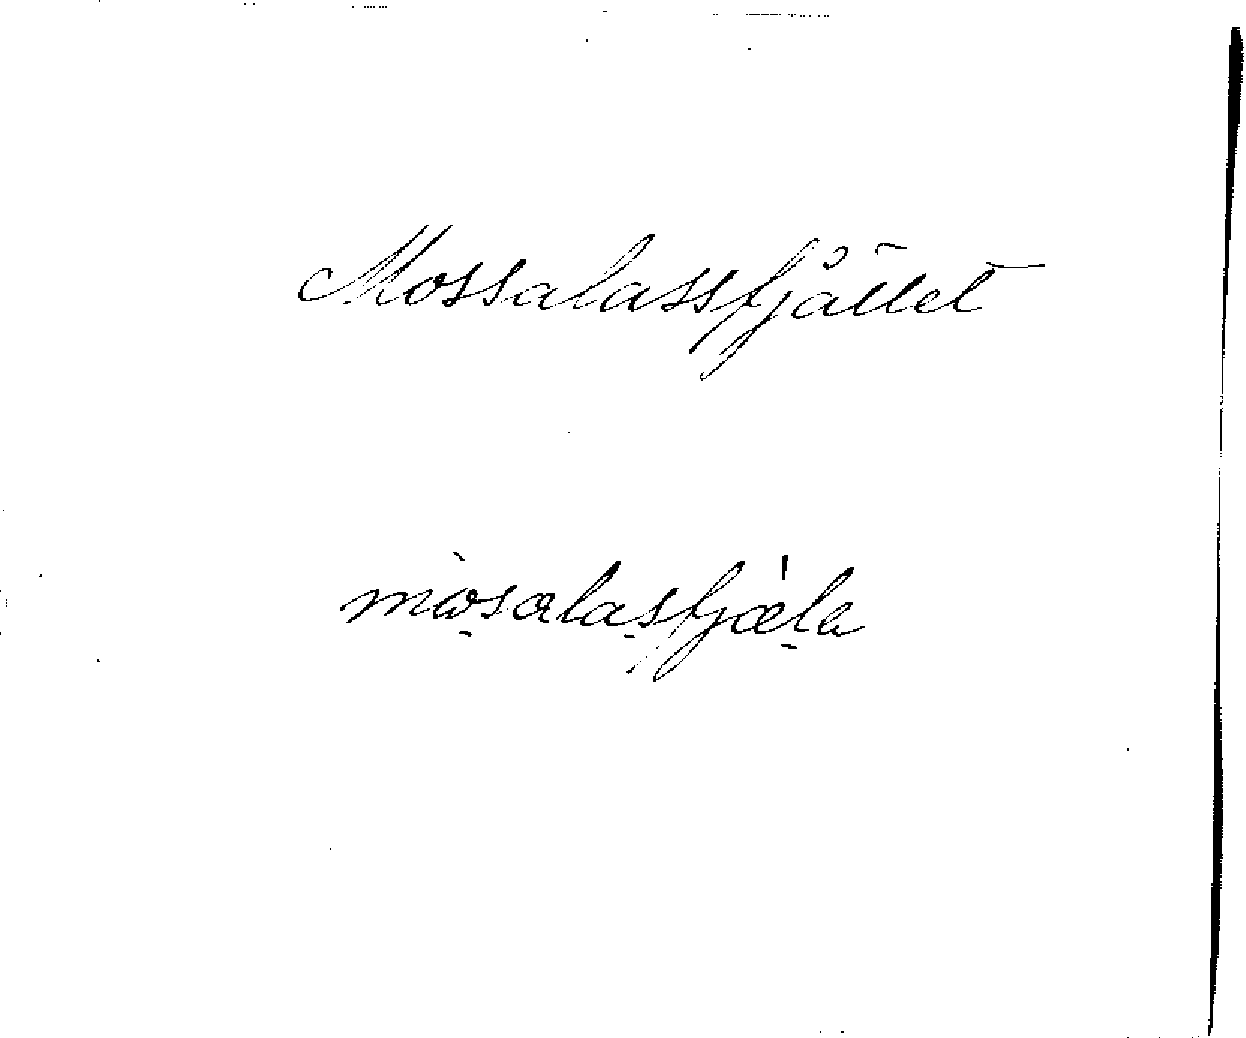 Mossalassfjället
mòsalasfjæ̍la